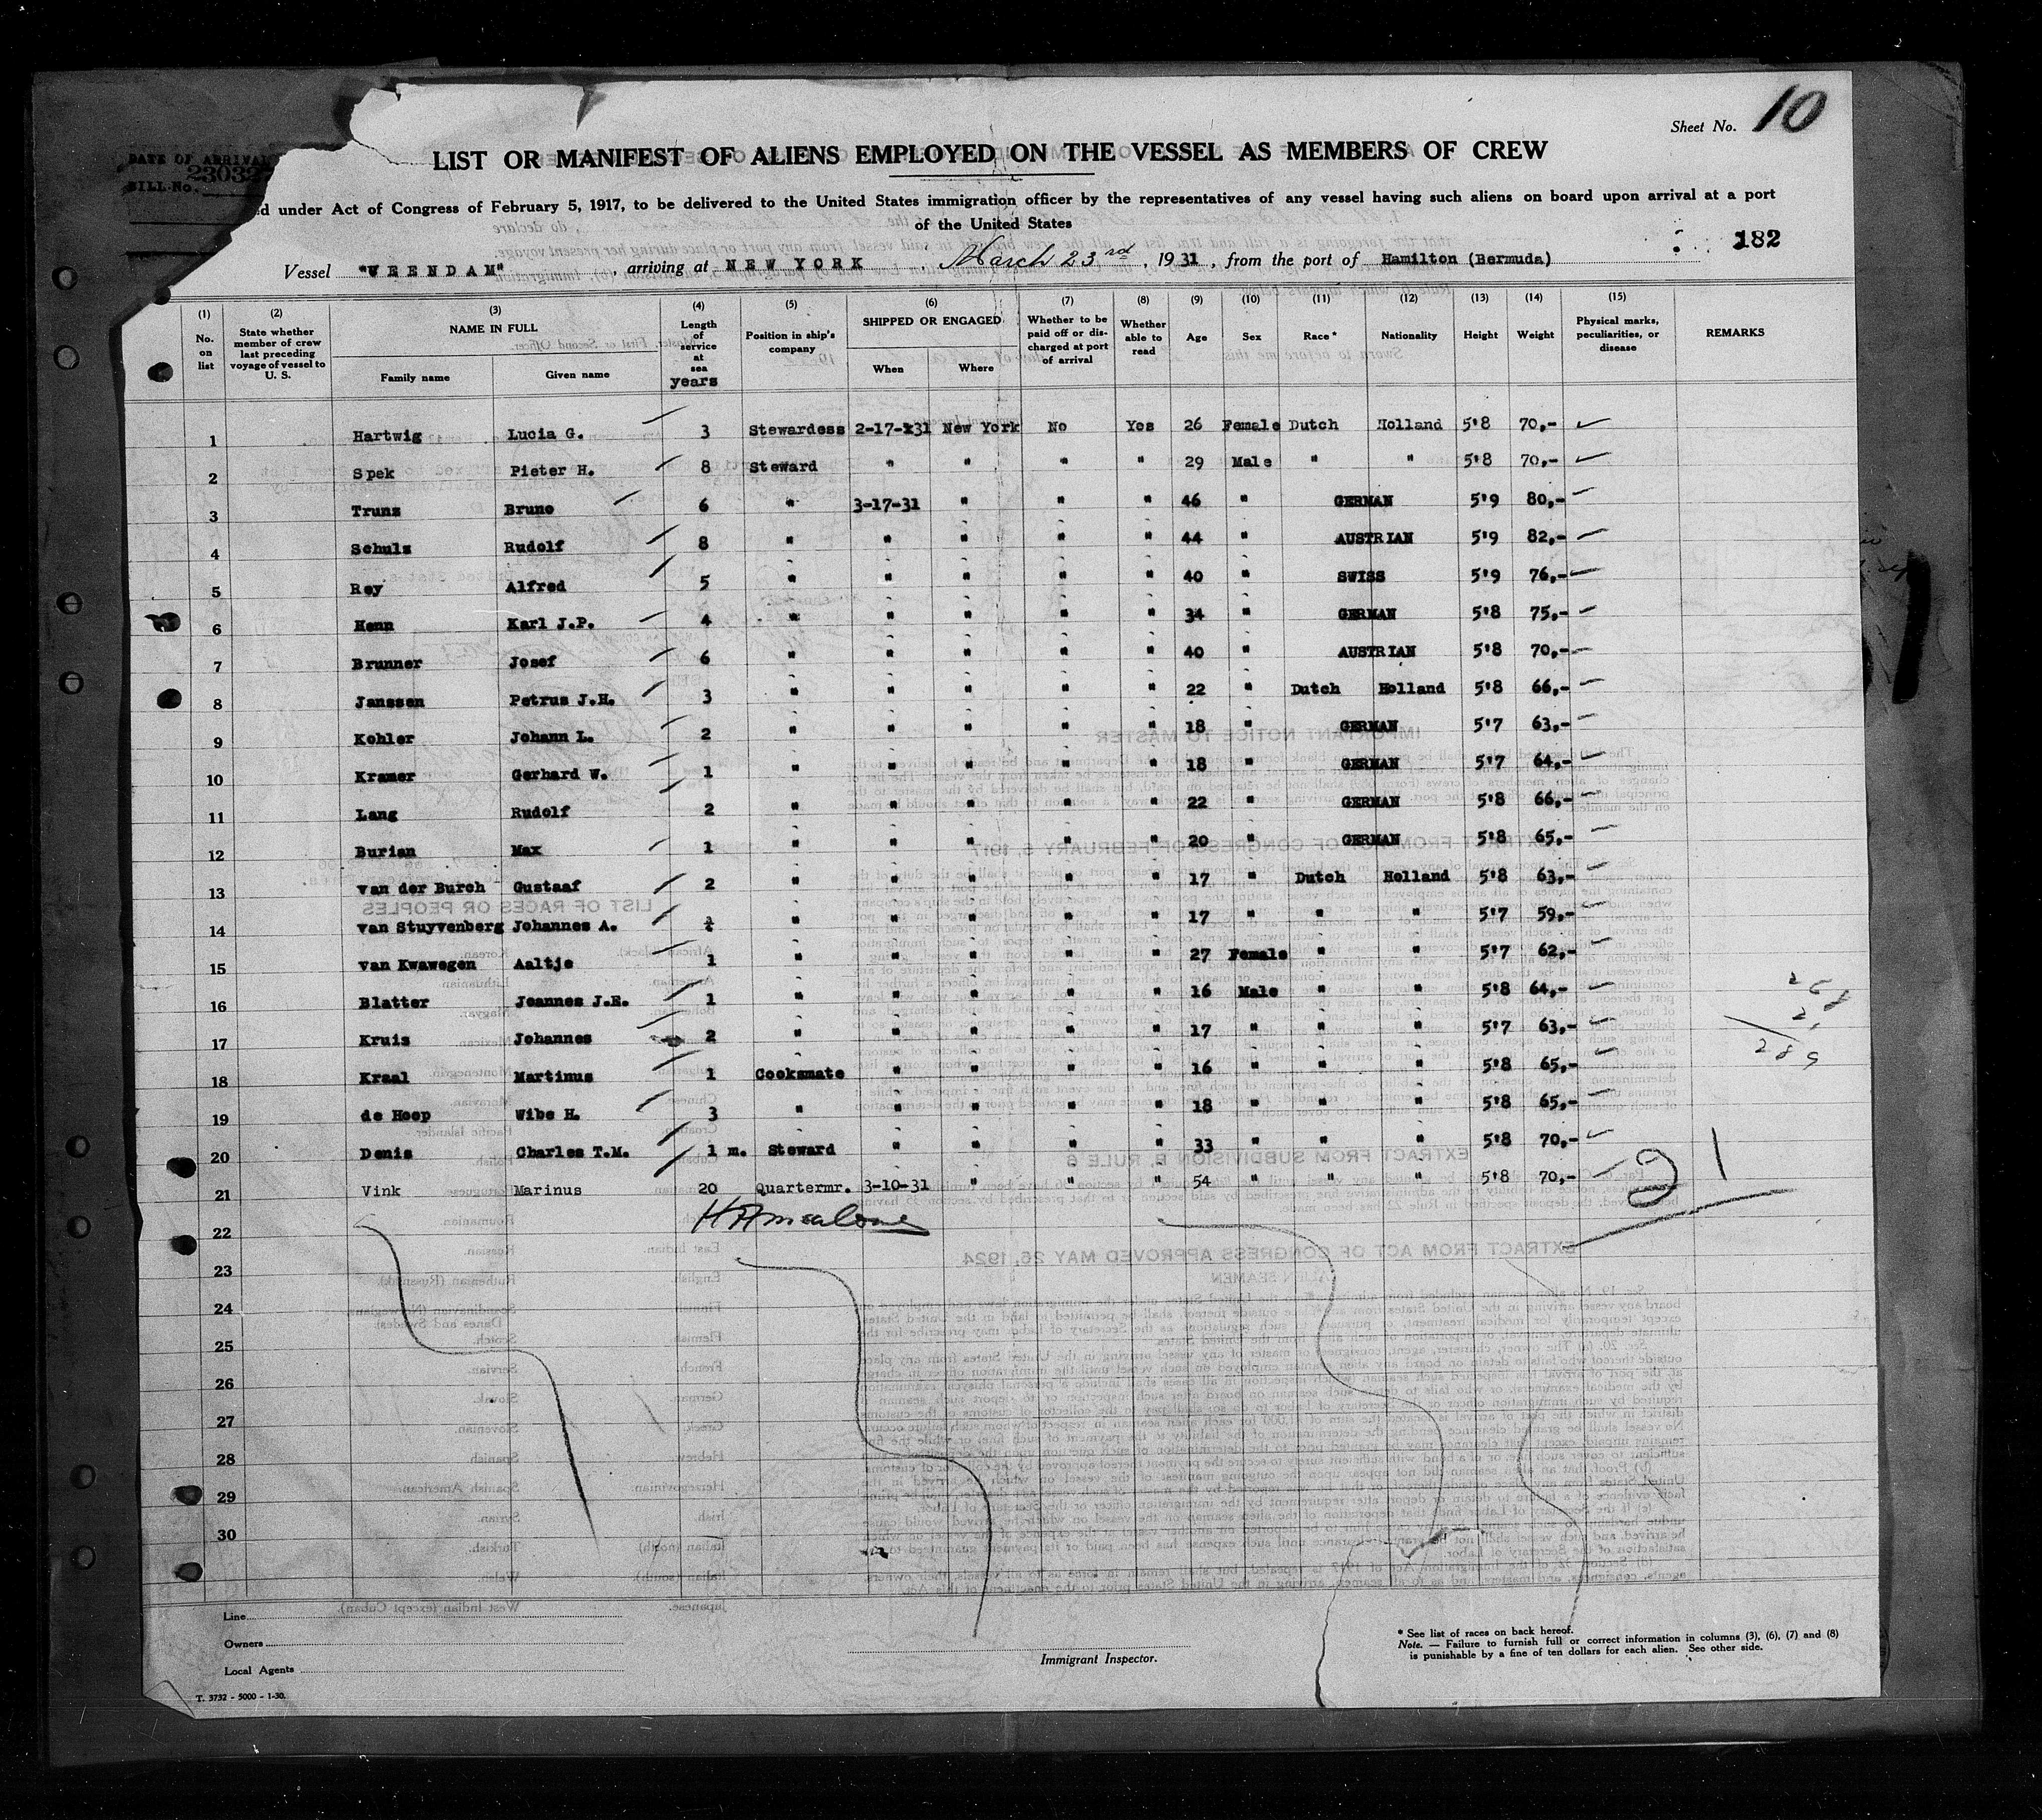 Sheet No. 10
DATE OF ARRIVAL
23032
BILL No.
LIST OR MANIFEST OF ALIENS EMPLOYED ON THE VESSEL AS MEMBERS OF CREW
under Act of Congress of February 5, 1917, to be delivered to the United States immigration officer by the representatives of any vessel having such aliens on board upon arrival at a port
of the United States
182
Vessel "VEENDAM", arriving at NEW YORK, March 23rd, 1931, from the port of Hamilton (Bermuda)
(1) (2) (3) (4) (5) (6) (7) (8) (9) (10) (11) (12) (13) (14) (15)
No. on list | State whether member of crew last preceding voyage of vessel to U. S. | NAME IN FULL Family name Given name | Length of service at sea years | Position in ship's company | SHIPPED OR ENGAGED When Where | Whether to be paid off or discharged at port of arrival | Whether able to read | Age | Sex | Race * | Nationality | Height | Weight | Physical marks, peculiarities, or disease | REMARKS
1 Hartwig Lucia G. 3 Stewardess 2-17-31 New York No Yes 26 Female Dutch Holland 5'8 70,-
2 Spek Pieter H. 8 Steward " " " " 29 Male " " 5'8 70,-
3 Truns Bruno 6 " 3-17-31 " " " 46 " GERMAN 5'9 80,-
4 Schulz Rudolf 8 " " " " " 44 " AUSTRIAN 5'9 82,-
5 Rey Alfred 5 " " " " " 40 " SWISS 5'9 76,-
6 Henn Karl J.P. 4 " " " " " 34 " GERMAN 5'8 75,-
7 Brunner Josef 6 " " " " " 40 " AUSTRIAN 5'8 70,-
8 Janssen Petrus J.H. 3 " " " " " 22 " Dutch Holland 5'8 66,-
9 Kohler Johann L. 2 " " " " " 18 " GERMAN 5'7 63,-
10 Kramer Gerhard W. 1 " " " " " 18 " GERMAN 5'7 64,-
11 Lang Rudolf 2 " " " " " 22 " GERMAN 5'8 66,-
12 Burian Max 1 " " " " " 20 " GERMAN 5'8 65,-
13 van der Burch Gustaaf 2 " " " " " 17 " Dutch Holland 5'8 63,-
14 van Stuyvenberg Johannes A. " " " " " 17 " " " 5'7 59,-
15 van Kwawegen Aaltje 1 " " " " " 27 Female " " 5'7 62,-
16 Blatter Jeannes J.H. 1 " " " " " 16 Male " " 5'8 64,-
17 Kruis Johannes 2 " " " " " 17 " " " 5'7 63,-
18 Kraal Martinus 1 Cooksmate " " " " 16 " " " 5'8 65,-
19 de Hoop Wibe H. 3 " " " " " 18 " " " 5'8 65,-
20 Denis Charles T.M. 1 m. Steward " " " " 33 " " " 5'8 70,-
21 Vink Marinus 20 Quartermr. 3-10-31 " " " 54 " " " 5'8 70,-
268
21
289
21
22
23
24
25
26
27
28
29
30
Line
Owners
Local Agents
Immigrant Inspector.
* See list of races on back hereof.
Note. — Failure to furnish full or correct information in columns (3), (6), (7) and (8)
is punishable by a fine of ten dollars for each alien. See other side.
T. 3732 - 5000 - 1-30.